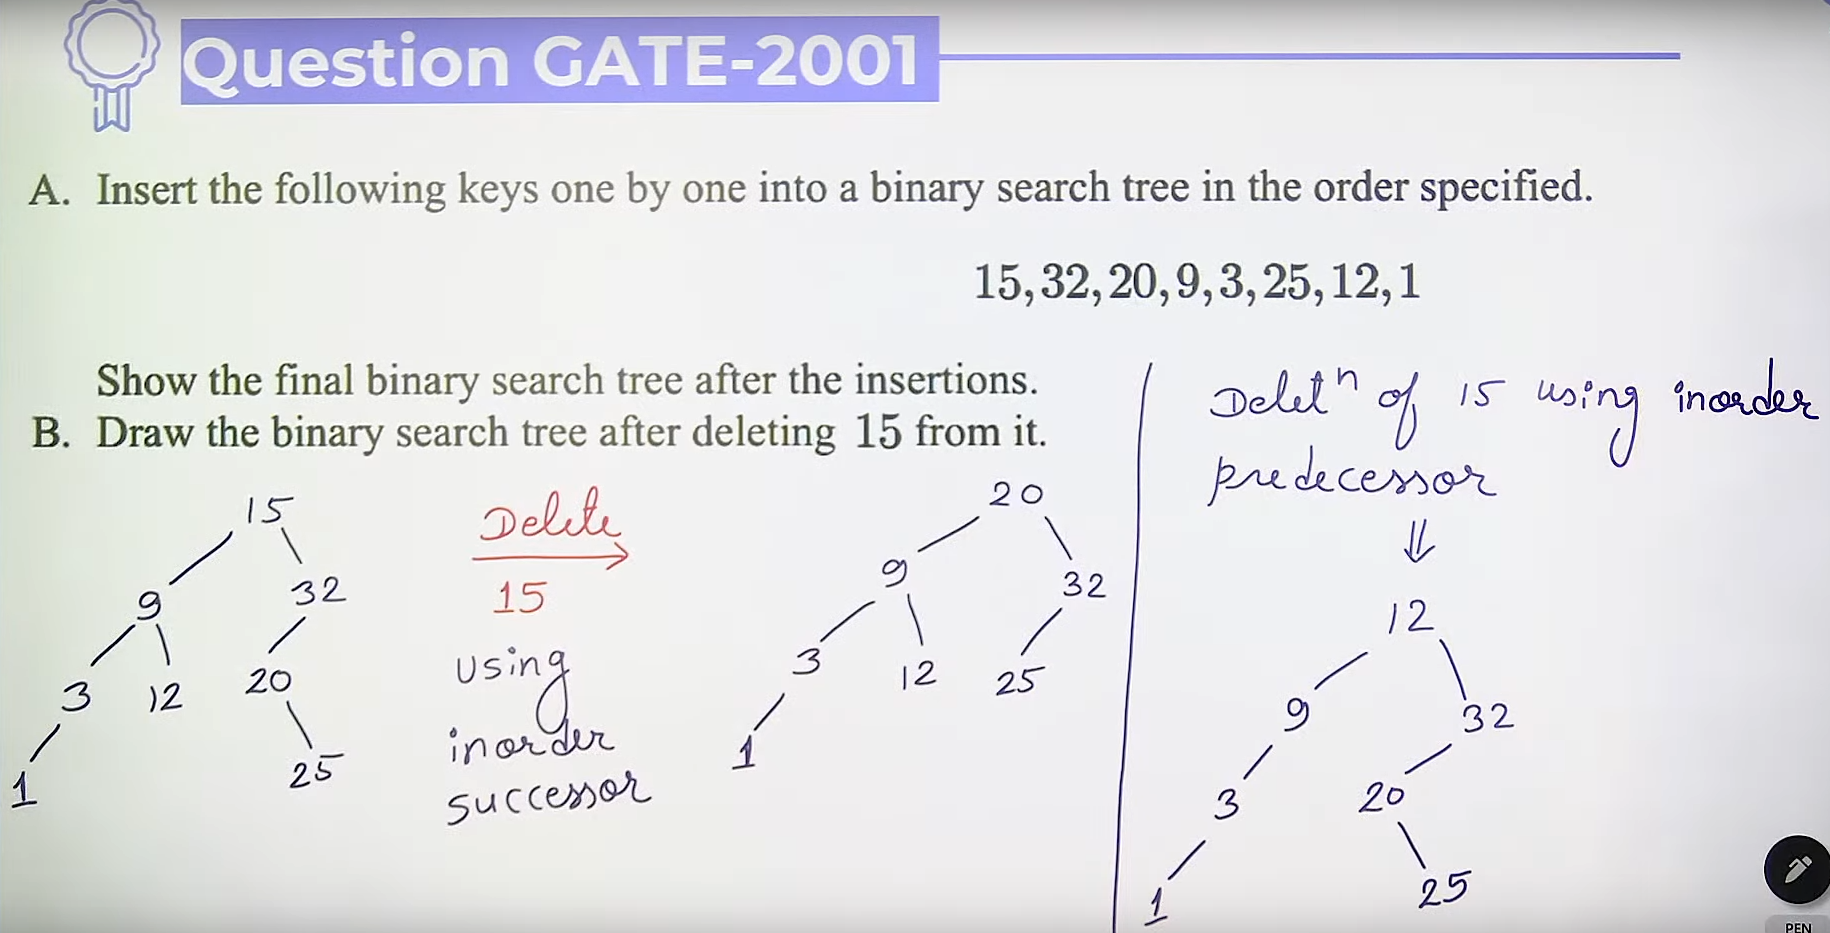 Question GATE-2001
A. Insert the following keys one by one into a binary search tree in the order specified.
15, 32, 20, 9, 3, 25, 12, 1
Show the final binary search tree after the insertions.
B. Draw the binary search tree after deleting 15 from it.
15
9
32
3
12
20
1
25
Delete
15
using
inorder
successor
20
9
32
3
12
25
1
Deletⁿ of 15 using inorder
predecessor
⇓
12
9
32
3
20
1
25
PEN